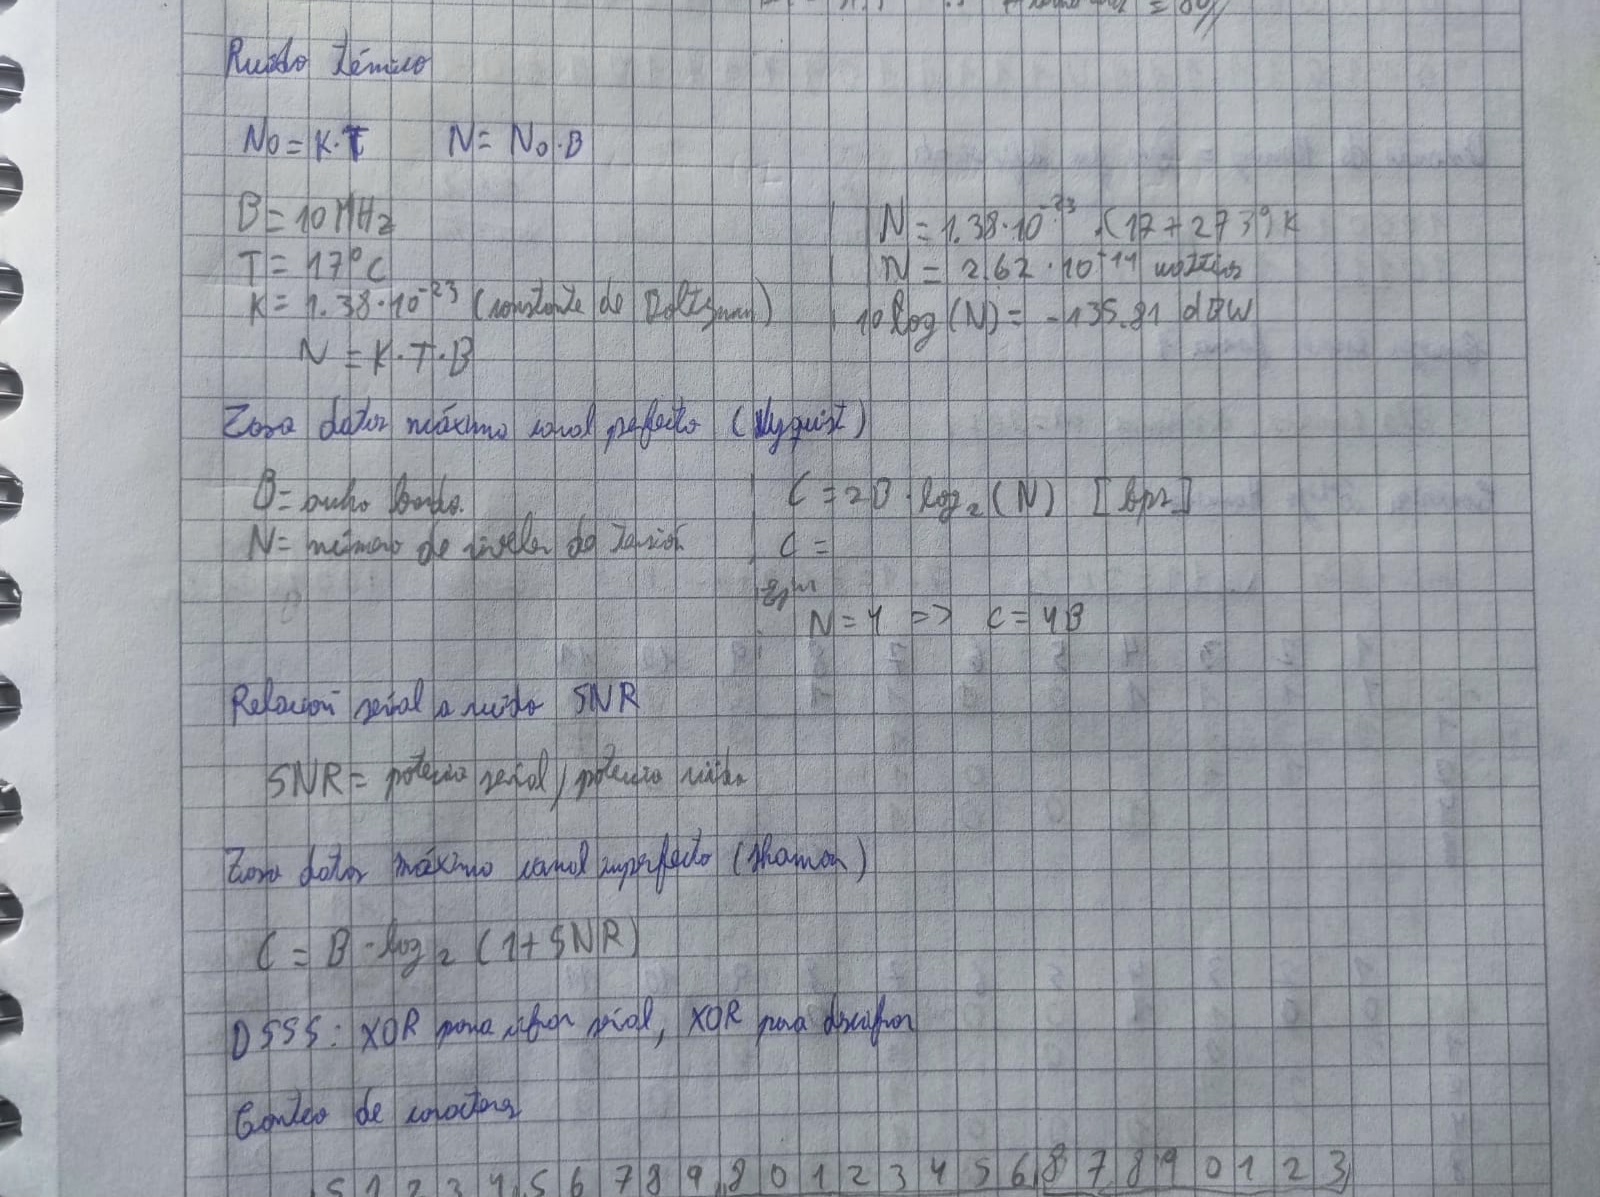 Ruido térmico
No = K·T    N = No·B
B = 10 MHz
T = 17°C
K = 1.38·10^-23 (constante de Boltzman)
N = K·T·B
N = 1.38·10^-23 · (17+273)°K
N = 2.62·10^-14 wattios
10 log(N) = -135.81 dBW
Tasa datos máximo canal perfecto (Nyquist)
B = ancho banda.
N = número de niveles de tensión
C = 2B·log₂(N) [bps]
C =
Ejm
N = 4 => C = 4B
Relación señal a ruido SNR
SNR = potencia señal / potencia ruido
Tasa datos máximo canal imperfecto (Shannon)
C = B·log₂(1+SNR)
DSSS: XOR para cifrar señal, XOR para descifrar
Conteo de caracteres
5 1 2 3 4 5 6 7 8 9 8 0 1 2 3 4 5 6 8 7 8 9 0 1 2 3